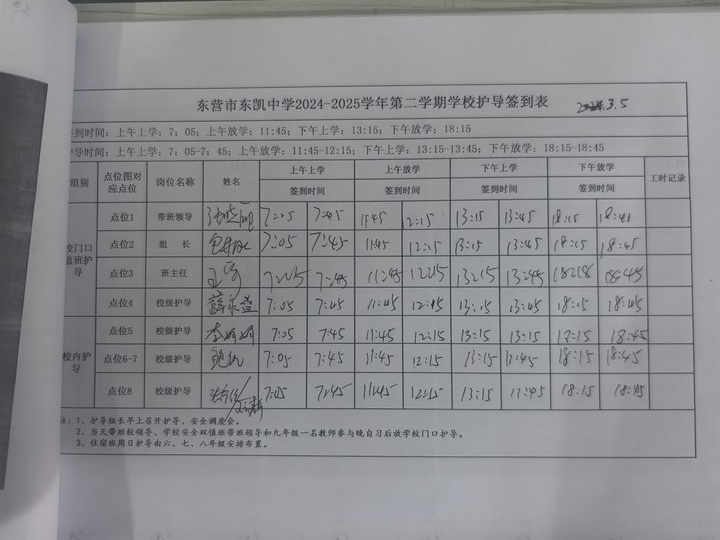 东营市东凯中学2024-2025学年第二学期学校护导签到表 3.5
到时间：上午上学：7：05；上午放学：11:45；下午上学：13:15；下午放学：18:15
导时间：上午上学：7：05-7；45；上午放学：11:45-12:15；下午上学：13:15-13:45；下午放学：18:15-18:45
组别 点位图对应点位 岗位名称 姓名 上午上学 上午放学 下午上学 下午放学 工时记录
签到时间 签到时间 签到时间 签到时间
校门口值班护导
点位1 带班领导 7:05 7:45 11:45 12:15 13:15 13:45 18:15 18:45
点位2 组 长 7:05 7:45 11:45 12:15 13:15 13:45 18:15 18:45
点位3 班主任 7:45 11:45 12:15 13:15 13:45 18:45
点位4 校级护导 7:05 7:45 11:45 12:15 13:15 13:45 18:15 18:45
校内护导
点位5 校级护导 李娟娟 7:05 7:45 11:45 12:15 13:15 13:45 18:45
点位6-7 校级护导 7:05 7:45 11:45 12:15 13:15 13:45 18:15 18:45
点位8 校级护导 7:05 7:45 11:45 12:15 13:15 13:45 18:15 18:45
注：1、护导组长早上召开护导、安全调度会。
2、当天带班校领导、学校安全双值班带班领导和九年级一名教师参与晚自习后放学校门口护导。
3、住宿班周日护导由六、七、八年级安排布置。